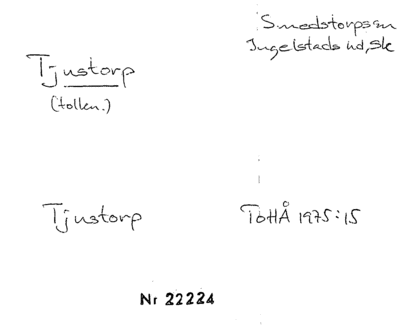 Smedstorps sn
Ingelstads hd, Sk
Tjustorp
(tolkn.)
Tjustorp
ToHÅ 1975:15
Nr 22224